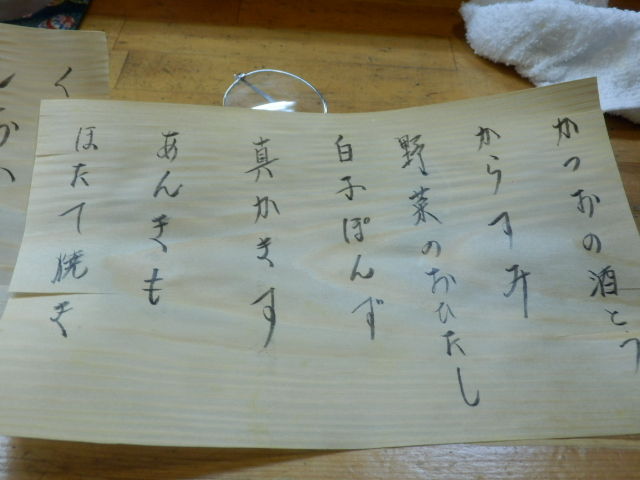 かつおの酒とう
からすみ
野菜のおひたし
白子ぽんず
真かきす
あんきも
ほたて焼き
く